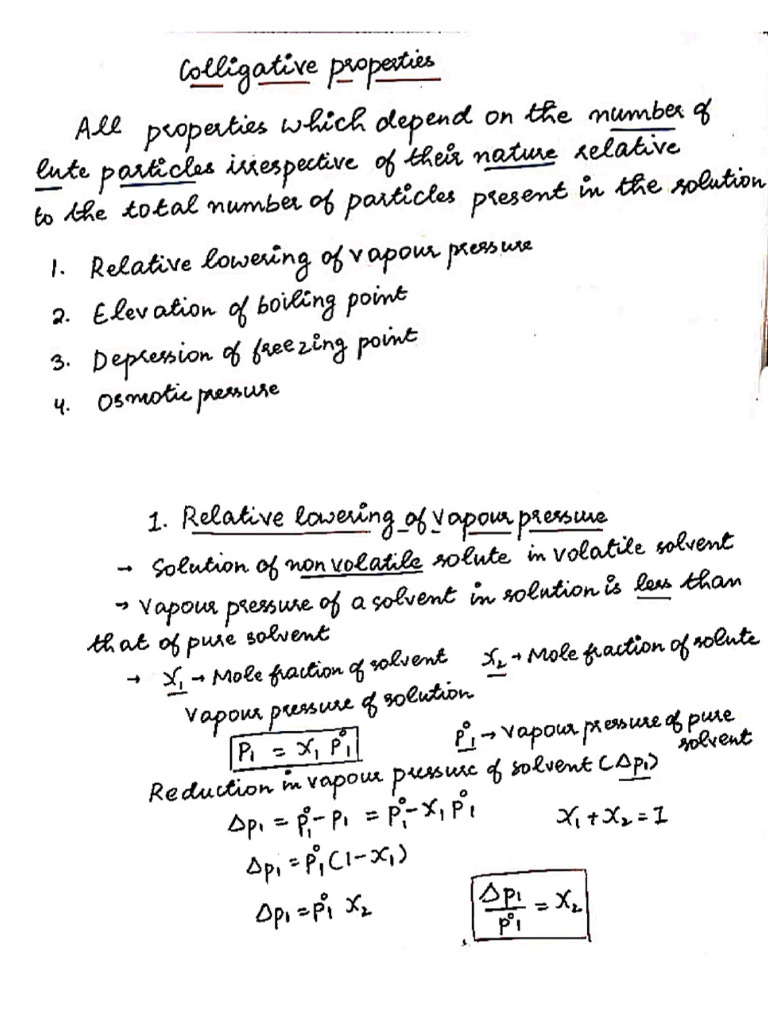 Colligative properties
All properties which depend on the number of
lute particles irrespective of their nature relative
to the total number of particles present in the solution
1. Relative lowering of vapour pressure
2. Elevation of boiling point
3. Depression of freezing point
4. Osmotic pressure
1. Relative lowering of vapour pressure
→ Solution of non volatile solute in volatile solvent
→ Vapour pressure of a solvent in solution is less than
that of pure solvent
→ x₁ → Mole fraction of solvent x₂ → Mole fraction of solute
Vapour pressure of solution
P₁ = x₁ P₁° P₁° → Vapour pressure of pure
solvent
Reduction in vapour pressure of solvent (Δp₁)
Δp₁ = p₁° - p₁ = p₁° - x₁ p₁° x₁ + x₂ = 1
Δp₁ = p₁° (1 - x₁)
Δp₁ = p₁° x₂ Δp₁/p₁° = x₂